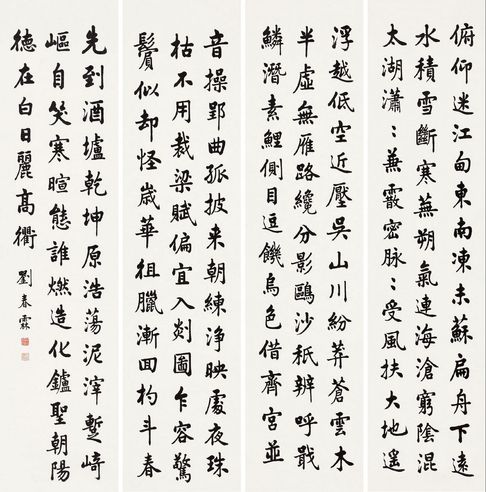 俯仰迷江甸東南凍未蘇扁舟下遠
水積雪斷寒蕪朔氣連海滄窮陰混
太湖瀟〻蕪霰密脉〻受風扶大地遥
浮越低空近壓吳山川紛莽蒼雲木
半虛無雁路纔分影鷗沙秖辨呼戢
鱗潛素鯉側目逗饑烏色借齊宮並
音操郢曲孤披来朝練淨映處夜珠
枯不用裁梁賦偏宜入剡圖乍容驚
鬢似却怪歲華徂臘漸回杓斗春
先到酒壚乾坤原浩蕩泥滓蹔崎
嶇自笑寒暄態誰燃造化鑪聖朝陽
德在白日麗高衢
劉春霖